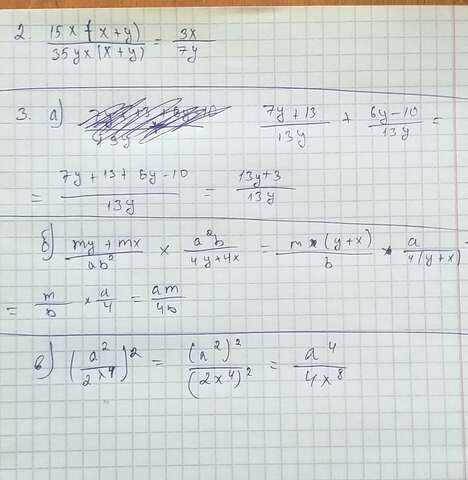 2. 15x(x+y)/35yx(x+y) = 3x/7y
3. а) (7y+13)/13y + (6y-10)/13y =
= (7y+13+6y-10)/13y = (13y+3)/13y
б) (my+mx)/ab² × a²b/(4y+4x) = m(y+x)/b × a/4(y+x) =
= m/b × a/4 = am/4b
в) (a²/2x⁴)² = (a²)²/(2x⁴)² = a⁴/4x⁸